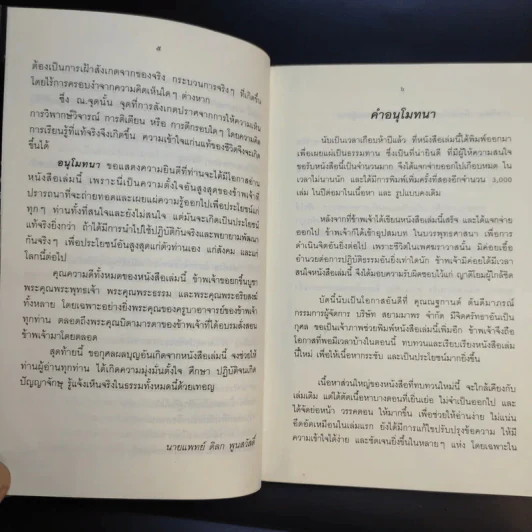 ๕
ต้องเป็นการเฝ้าสังเกตจากของจริง กระบวนการจริงๆ ที่เกิดขึ้น
โดยไร้การครอบงำจากความคิดเห็นใดๆ ต่างหาก
ซึ่ง ณ.จุดนั้น จุดที่การสังเกตปราศจากการให้ความเห็น
การวิพากษ์วิจารณ์ การติเตียน หรือ การตึกรองใดๆ โดยความคิด
การเรียนรู้ที่แท้จริงจึงเกิดขึ้น ความเข้าใจแก่นแท้ของชีวิตจึงจะเกิด
ขึ้นได้
อนุโมทนา ขอแสดงความยินดีที่ท่านจะได้มีโอกาสอ่าน
หนังสือเล่มนี้ เพราะนี่เป็นความตั้งใจอันสูงสุดของข้าพเจ้าที่
ปรารถนาที่จะถ่ายทอดและเผยแผ่ความรู้ออกไปเพื่อประโยชน์แก่
ทุกๆ ท่านทั้งที่สนใจและยังไม่สนใจ แต่มันจะเกิดเป็นประโยชน์
แท้จริงยิ่งกว่า ถ้าได้มีการนำไปใช้ปฏิบัติกันจริงและพยายามพัฒนา
กันจริงๆ เพื่อประโยชน์อันสูงสุดแก่ตัวท่านเอง แก่สังคม และแก่
โลกนี้ต่อไป
คุณความดีทั้งหมดของหนังสือเล่มนี้ ข้าพเจ้าขอยกขึ้นบูชา
พระคุณพระพุทธเจ้า พระคุณพระธรรม และพระคุณพระอริยสงฆ์
ทั้งหลาย โดยเฉพาะอย่างยิ่งพระคุณของครูบาอาจารย์ของข้าพเจ้า
ทุกท่าน ตลอดถึงพระคุณบิดามารดาของข้าพเจ้าที่ได้อบรมสั่งสอน
ข้าพเจ้ามาโดยตลอด
สุดท้ายนี้ ขอกุศลผลบุญอันเกิดจากหนังสือเล่มนี้ จงช่วยให้
ท่านผู้อ่านทุกท่าน ได้เกิดความมุ่งมั่นตั้งใจ ศึกษา ปฏิบัติจนเกิด
ปัญญาจักษุ รู้แจ้งเห็นจริงในธรรมทั้งหมดนี้ด้วยเทอญ
นายแพทย์ ดิลก พูนสวัสดิ์
๖
คำอนุโมทนา
นับเป็นเวลาเกือบห้าปีแล้ว ที่หนังสือเล่มนี้ได้พิมพ์ออกมา
เพื่อเผยแผ่เป็นธรรมทาน ซึ่งเป็นที่น่ายินดี ที่มีผู้ให้ความสนใจ
ขอรับหนังสือนี้เป็นจำนวนมาก จึงได้แจกจ่ายออกไปเกือบหมด ใน
เวลาไม่นานนัก และได้มีการพิมพ์เพิ่มครั้งที่สองอีกจำนวน ๖,๐๐๐
เล่ม ในปีต่อมาในเนื้อหา และ รูปแบบคงเดิม
หลังจากที่ข้าพเจ้าได้เขียนหนังสือเล่มนี้เสร็จ และได้แจกจ่าย
ออกไป ข้าพเจ้าก็ได้เข้าอุปสมบท ในบวรพุทธศาสนา เพื่อการ
ดำเนินจิตอันยิ่งต่อไป เพราะชีวิตในเพศฆราวาสนั้น มิค่อยเอื้อ
อำนวยต่อการปฏิบัติธรรมอันยิ่งเท่าใดนัก ข้าพเจ้าจึงมิค่อยได้มีเวลา
สนใจหนังสือเล่มนี้ จึงได้มอบความรับผิดชอบไว้แก่ ญาติโยมผู้ใกล้ชิด
บัดนี้นับเป็นโอกาสอันดีที่ คุณณฐกานต์ ตันติมาภรณ์
กรรมการผู้จัดการ บริษัท สยามมาพร จำกัด มีจิตศรัทธาอันเป็น
กุศล ขอเป็นเจ้าภาพช่วยพิมพ์หนังสือนี้เพิ่มอีก ข้าพเจ้าจึงถือ
โอกาสที่พอมีเวลาบ้างในตอนนี้ ทบทวนและเรียบเรียงหนังสือเล่ม
นี้ใหม่ เพื่อให้เนื้อหากระชับ และเป็นประโยชน์มากยิ่งขึ้น
เนื้อหาส่วนใหญ่ของหนังสือที่ทบทวนใหม่นี้ จะใกล้เคียงกับ
เล่มเดิม แต่ได้ตัดเนื้อหาบางตอนที่เยิ่นเย้อ ไม่จำเป็นออกไป และ
ได้จัดย่อหน้า วรรคตอน ให้มากขึ้น เพื่อช่วยให้อ่านง่าย ไม่แน่น
อึดอัดเหมือนในเล่มแรก ยังได้มีการแก้ไขปรับปรุงข้อความ ให้มี
ความเข้าใจได้ง่าย และชัดเจนยิ่งขึ้นในหลายๆ แห่ง โดยเฉพาะใน